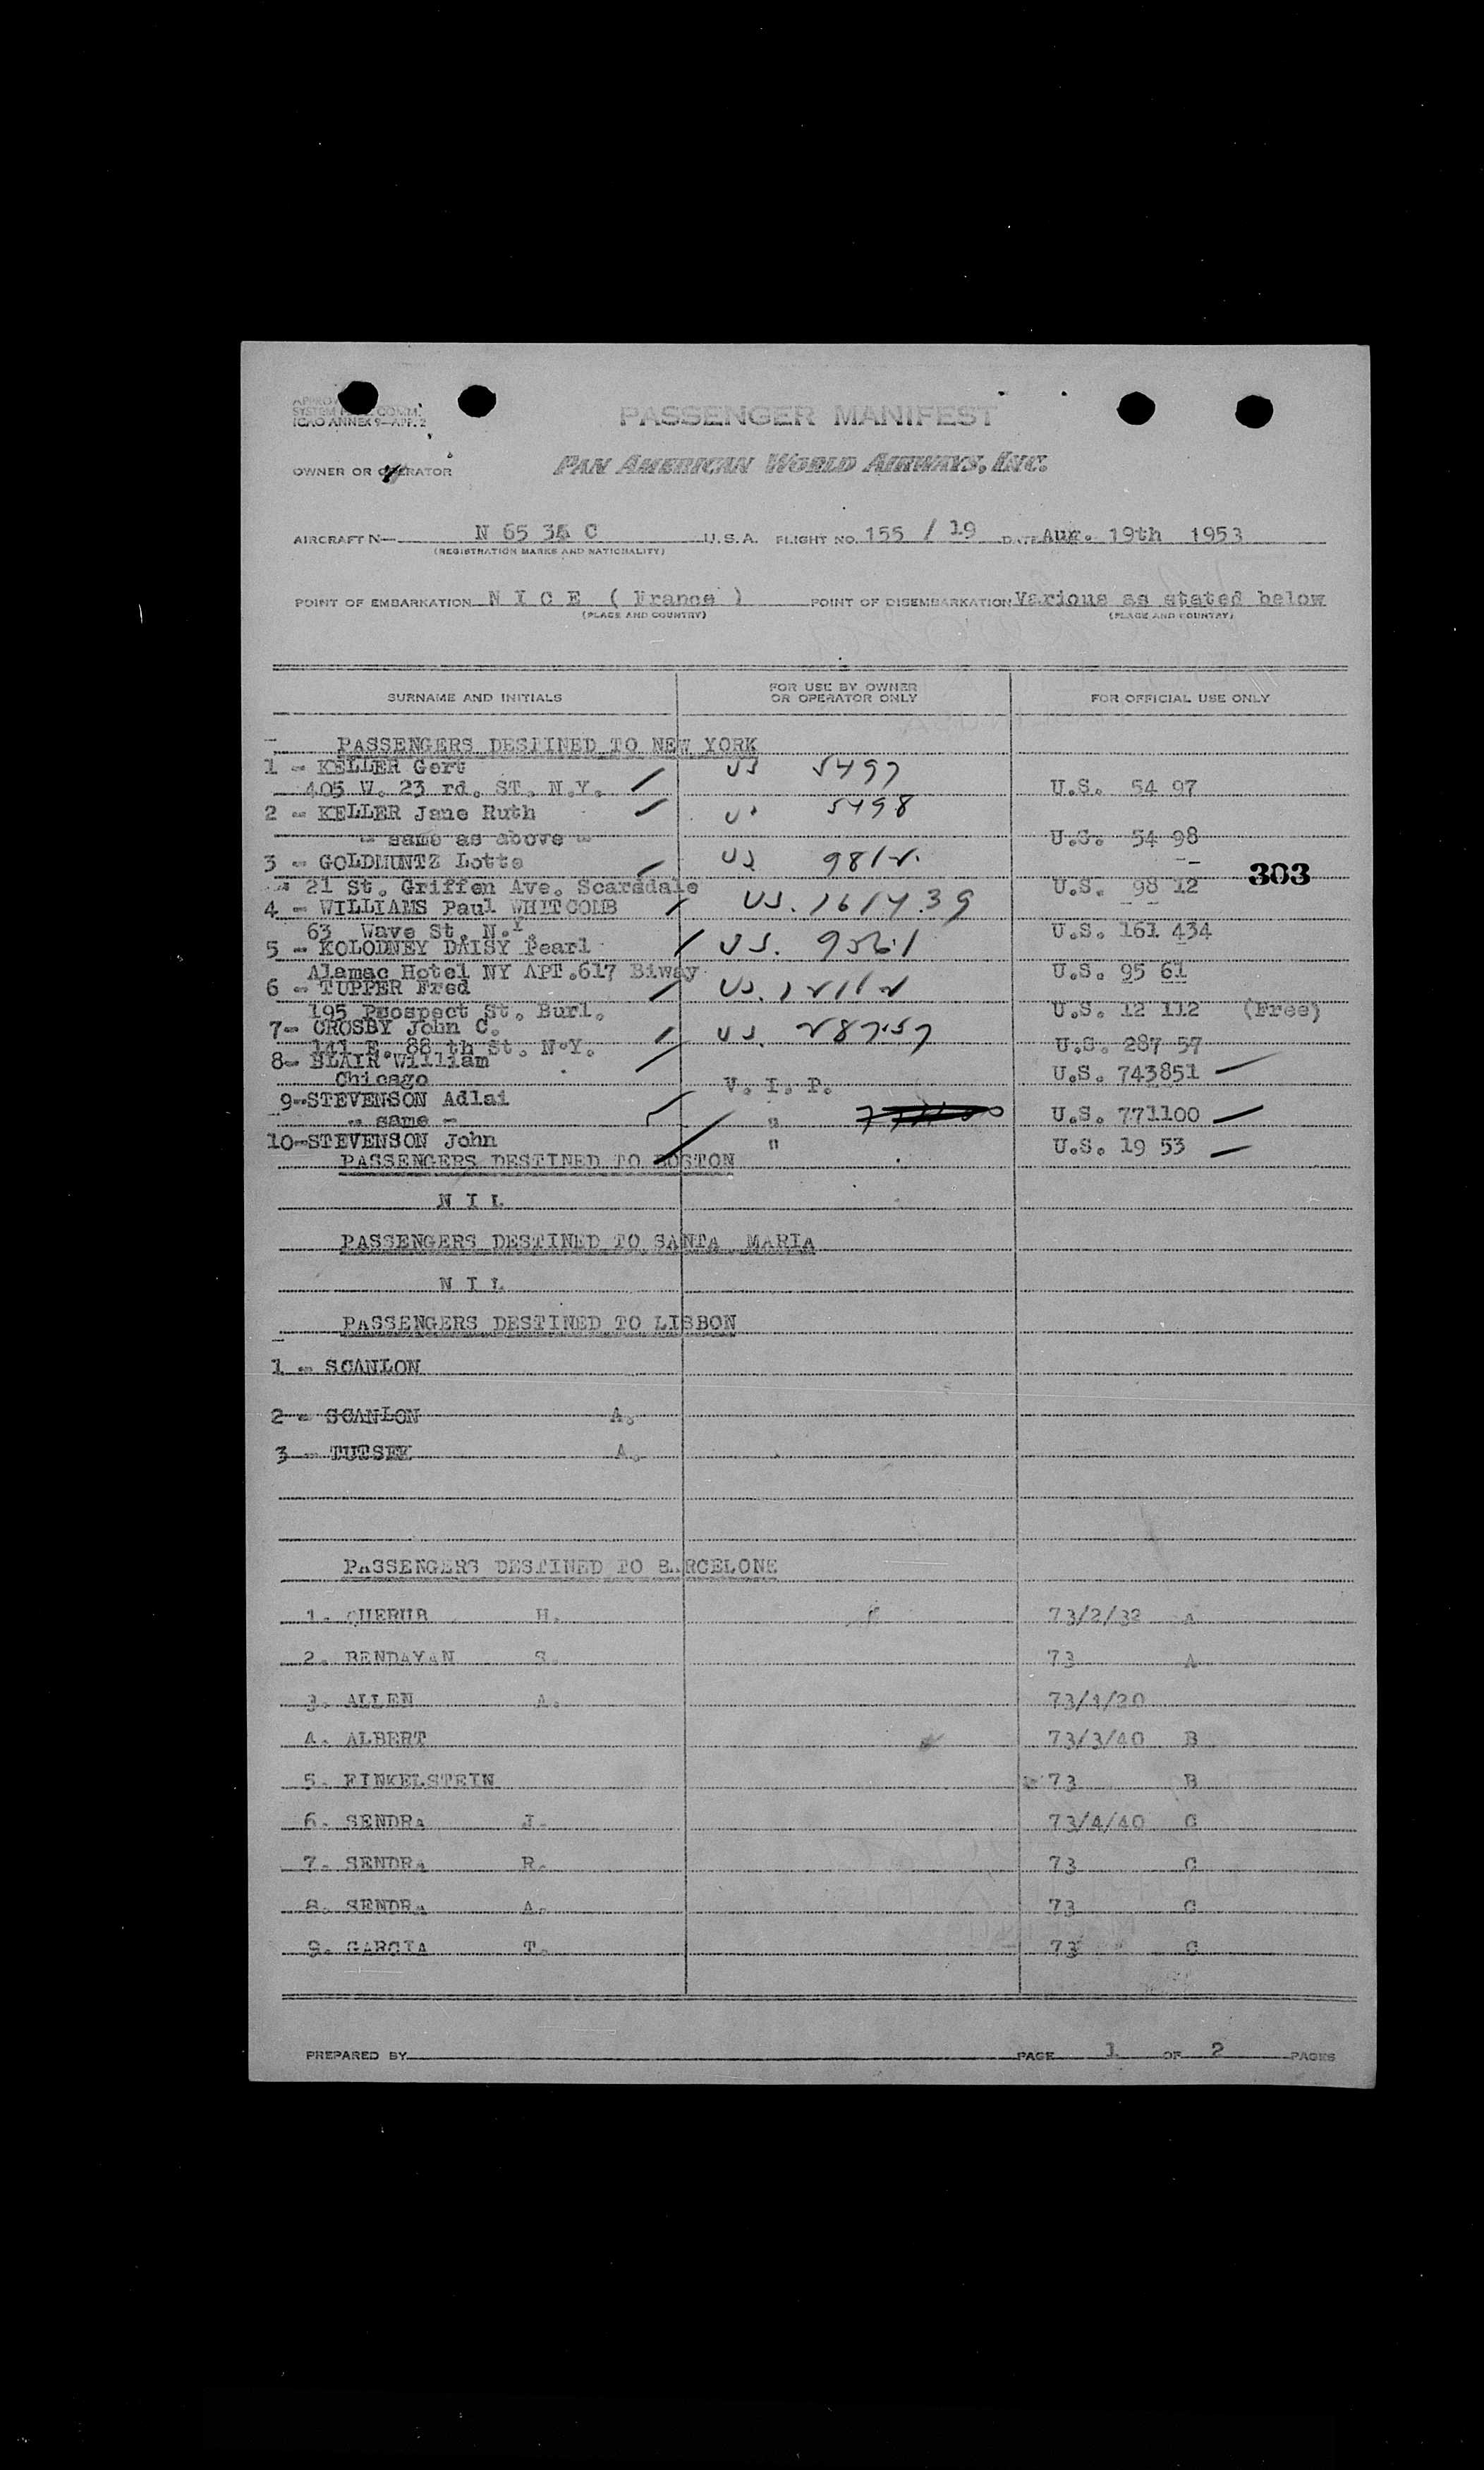 SYSTEM COMM.
ICAO ANNEX 9—APP. 2
PASSENGER MANIFEST
OWNER OR OPERATOR PAN AMERICAN WORLD AIRWAYS, INC.
AIRCRAFT N— N 65 C U.S.A. FLIGHT NO. 155 / 19 DATE Aug. 19th 1953
(REGISTRATION MARKS AND NATIONALITY)
POINT OF EMBARKATION N I C E ( France ) POINT OF DISEMBARKATION Various as stated below
(PLACE AND COUNTRY) (PLACE AND COUNTRY)
SURNAME AND INITIALS FOR USE BY OWNER OR OPERATOR ONLY FOR OFFICIAL USE ONLY
PASSENGERS DESTINED TO NEW YORK
1 - KELLER Gert US 5497
405 W. 23 rd. ST. N.Y. U.S. 54 97
2 - KELLER Jane Ruth 5498
- same as above - U.S. 54 98
3 - GOLDMUNTZ Lotte US 9812
303
21 St. Griffen Ave. Scarsdale U.S. 98 12
4 - WILLIAMS Paul WHITCOMB US.
63 Wave St. N.Y. U.S. 161 434
5 - KOLODNEY DAISY Pearl US. 9561
Alamac Hotel NY APT.617 B.way U.S. 95 61
6 - TUPPER Fred US. 12112
195 Prospect St. Burl. U.S. 12 112 (Free)
7- CROSBY John C. US. 28757
141 E. 88 th St. N.Y. U.S. 287 57
8- BLAIR William
Chicago V. I. P. U.S. 743851
9--STEVENSON Adlai
- same - " U.S. 771100
10-STEVENSON John " U.S. 19 53
PASSENGERS DESTINED TO BOSTON
N I L
PASSENGERS DESTINED TO SANTA MARIA
N I L
PASSENGERS DESTINED TO LISBON
1 - SCANLON
2 - SCANLON A.
3 - TUTSEK A.
PASSENGERS DESTINED TO BARCELONE
1. CHERUB H. 73/2/32 A
2. BENDAYAN S. 73 A
3. ALLEN A. 73/1/20
4. ALBERT 73/3/40 B
5. FINKELSTEIN 73 B
6. SENDRA J. 73/4/40 C
7. SENDRA R. 73 C
8. SENDRA A. 73 C
9. GARCIA T. 73 C
PREPARED BY PAGE 1 OF 2 PAGES